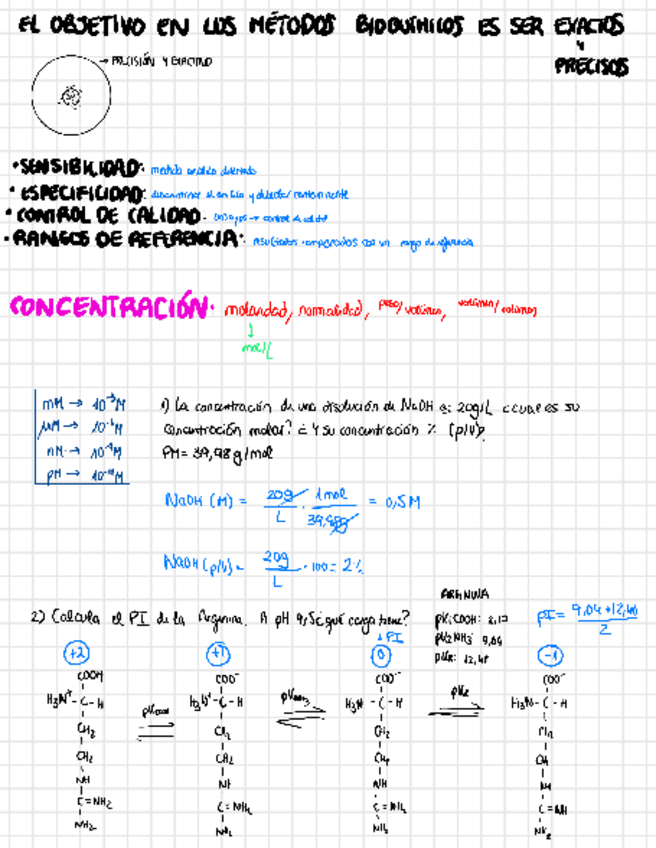 EL OBJETIVO EN LOS MÉTODOS BIOQUÍMICOS ES SER EXACTOS
Y
PRECISOS
→ PRECISIÓN Y EXACTITUD
• SENSIBILIDAD:
• ESPECIFICIDAD:
• CONTROL DE CALIDAD.
• RANGOS DE REFERENCIA: resultados comparados con un rango de referencia
CONCENTRACIÓN: molaridad, normalidad, peso/volumen, volumen/volumen
↓
mol/L
mM → 10⁻³M
μM → 10⁻⁶M
nM → 10⁻⁹M
pM → 10⁻¹²M
1) La concentración de una disolución de NaOH es 20g/L ¿cual es su
concentración molar? ¿ Y su concentración % (p/v)?
PM = 39,98 g/mol
NaOH (M) = 20g/L · 1mol/39,98g = 0,5M
NaOH (p/v) = 20g/L · 100 = 2%
ARGININA
2) Calcula el PI de la Arginina. A pH 9,5 ¿qué carga tiene?
pK₁COOH: 2,17
pK₂NH₃: 9,04
pKR: 12,48
pI = 9,04 + 12,48 / 2
↓ PI
+2 +1 0 -1
COOH COO⁻ COO⁻ COO⁻
H₃N⁺-C-H H₃N⁺-C-H H₂N-C-H
pKCOOH pKNH₃ pKR
CH₂ CH₂ CH₂
CH₂ CH₂ CH₂
NH NH NH NH
C=NH₂ C=NH₂ C=NH₂ C=NH
NH₂ NH₂ NH₂ NH₂